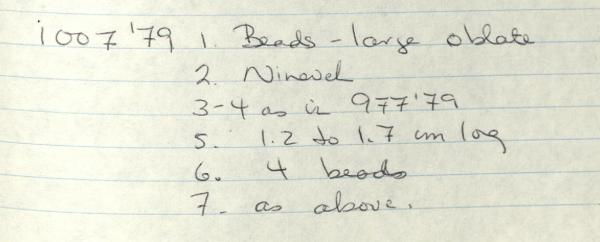 1007'79 1. Beads - large oblate
2. Nineveh
3-4 as in 977'79
5. 1.2 to 1.7 cm long
6. 4 beads
7. as above.